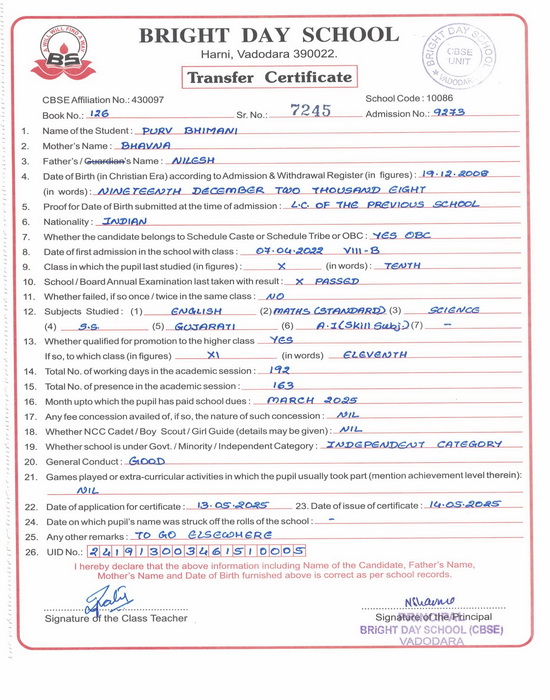 A WILL WILL FIND A WAY
BS
BRIGHT DAY SCHOOL
Harni, Vadodara 390022.
Transfer Certificate
BRIGHT DAY SCHOOL
CBSE
UNIT
VADODARA
CBSE Affiliation No.: 430097
School Code : 10086
Book No.: 126 Sr. No.: 7245 Admission No.: 9273
1. Name of the Student : PURV BHIMANI
2. Mother's Name : BHAVNA
3. Father's / Guardian's Name : NILESH
4. Date of Birth (in Christian Era) according to Admission & Withdrawal Register (in figures) : 19.12.2008
(in words) : NINETEENTH DECEMBER TWO THOUSAND EIGHT
5. Proof for Date of Birth submitted at the time of admission : L.C. OF THE PREVIOUS SCHOOL
6. Nationality : INDIAN
7. Whether the candidate belongs to Schedule Caste or Schedule Tribe or OBC : YES OBC
8. Date of first admission in the school with class : 07.04.2022 VIII-B
9. Class in which the pupil last studied (in figures) : X (in words) : TENTH
10. School / Board Annual Examination last taken with result : X PASSED
11. Whether failed, if so once / twice in the same class : NO
12. Subjects Studied : (1) ENGLISH (2) MATHS (STANDARD) (3) SCIENCE
(4) S.S. (5) GUJARATI (6) A.I (Skill Subj.) (7) –
13. Whether qualified for promotion to the higher class YES
If so, to which class (in figures) XI (in words) ELEVENTH
14. Total No. of working days in the academic session : 192
15. Total No. of presence in the academic session : 163
16. Month upto which the pupil has paid school dues : MARCH 2025
17. Any fee concession availed of, if so, the nature of such concession : NIL
18. Whether NCC Cadet / Boy Scout / Girl Guide (details may be given) : NIL
19. Whether school is under Govt. / Minority / Independent Category : INDEPENDENT CATEGORY
20. General Conduct : GOOD
21. Games played or extra-curricular activities in which the pupil usually took part (mention achievement level therein):
NIL
22. Date of application for certificate : 13.05.2025 23. Date of issue of certificate : 14.05.2025
24. Date on which pupil's name was struck off the rolls of the school : –
25. Any other remarks : TO GO ELSEWHERE
26. UID No.: 241913003461510005
I hereby declare that the above information including Name of the Candidate, Father's Name,
Mother's Name and Date of Birth furnished above is correct as per school records.
Signature of the Class Teacher
Signature of the Principal
PRINCIPAL
BRIGHT DAY SCHOOL (CBSE)
VADODARA